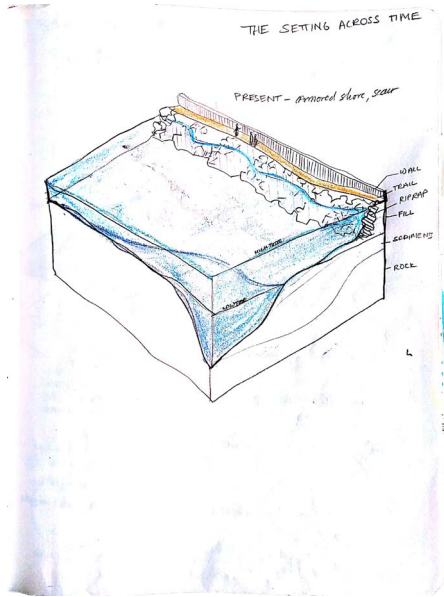 THE SETTING ACROSS TIME
PRESENT - Armored shore, scour
WALL
TRAIL
RIPRAP
FILL
SEDIMENT
ROCK
HIGH TIDE
LOW TIDE